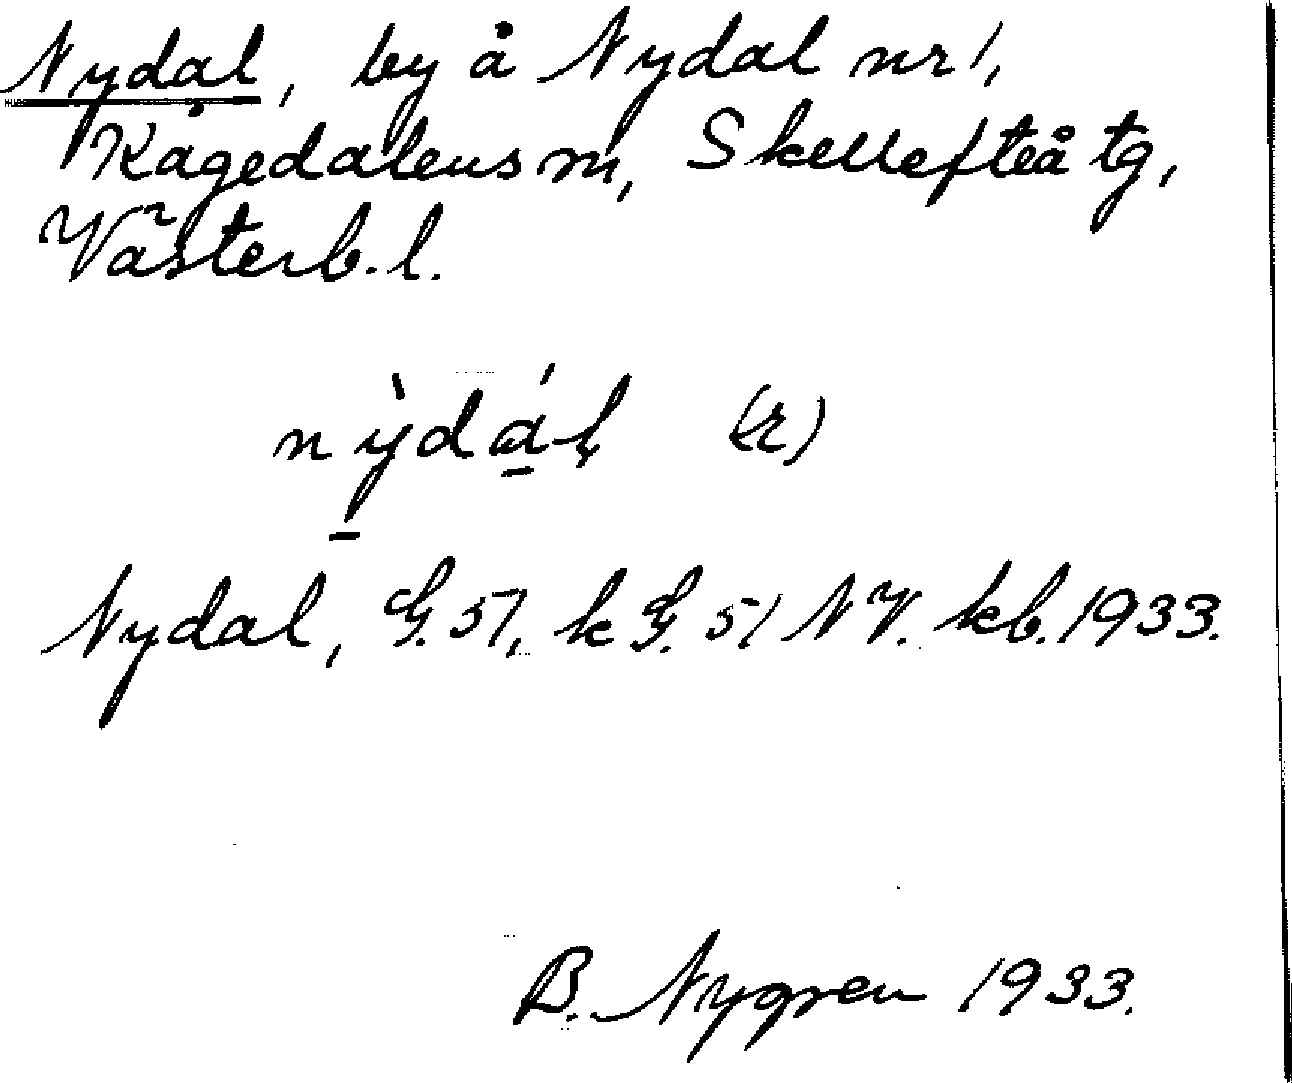 Nydal, by å Nydal nr 1,
Kågedalens m, Skellefteå tg,
Västerb. l.
nỳdál (r)
Nydal, G. 51, k G. 51 NV. kb. 1933.
B. Nygren 1933.